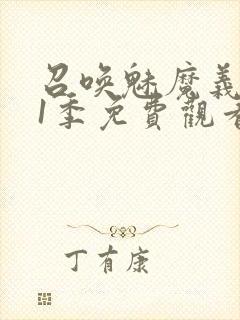 召喚魅魔義
1季免費觀看
丁有康